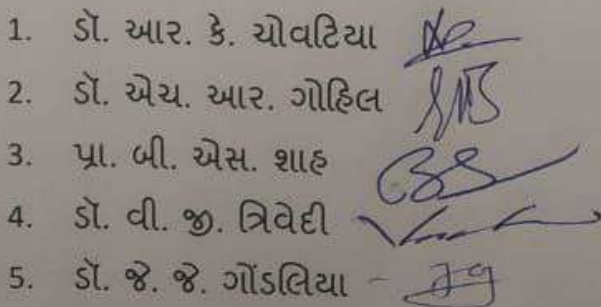 1. ડૉ. આર. કે. ચોવટિયા
2. ડૉ. એચ. આર. ગોહિલ
3. પ્રા. બી. એસ. શાહ
4. ડૉ. વી. જી. ત્રિવેદી
5. ડૉ. જે. જે. ગોંડલિયા -